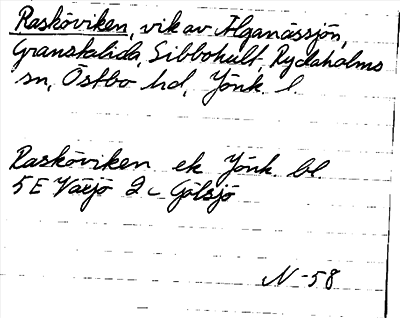 Rasköviken, vik av Älganässjön,
Granstalida, Sibbohult, Rydaholms
sn, Östbo hd, Jönk. l.
Rasköviken ek Jönk. bl.
5 E Växjö 2 c Götsjö
N -58